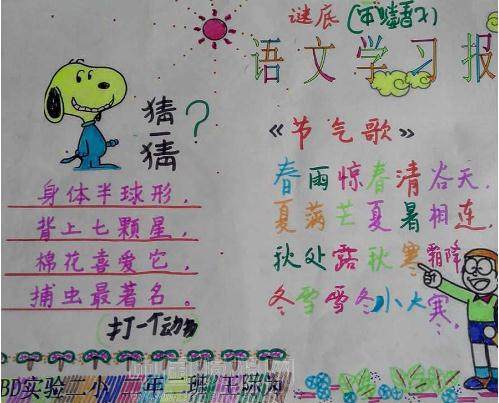 谜底
语文学习报
猜一猜?
身体半球形，
背上七颗星，
棉花喜爱它，
捕虫最著名。
打一个动物
《节气歌》
春雨惊春清谷天，
夏满芒夏暑相连，
秋处露秋寒霜降
冬雪雪冬小大寒，
BD实验二小 年二班 王陈